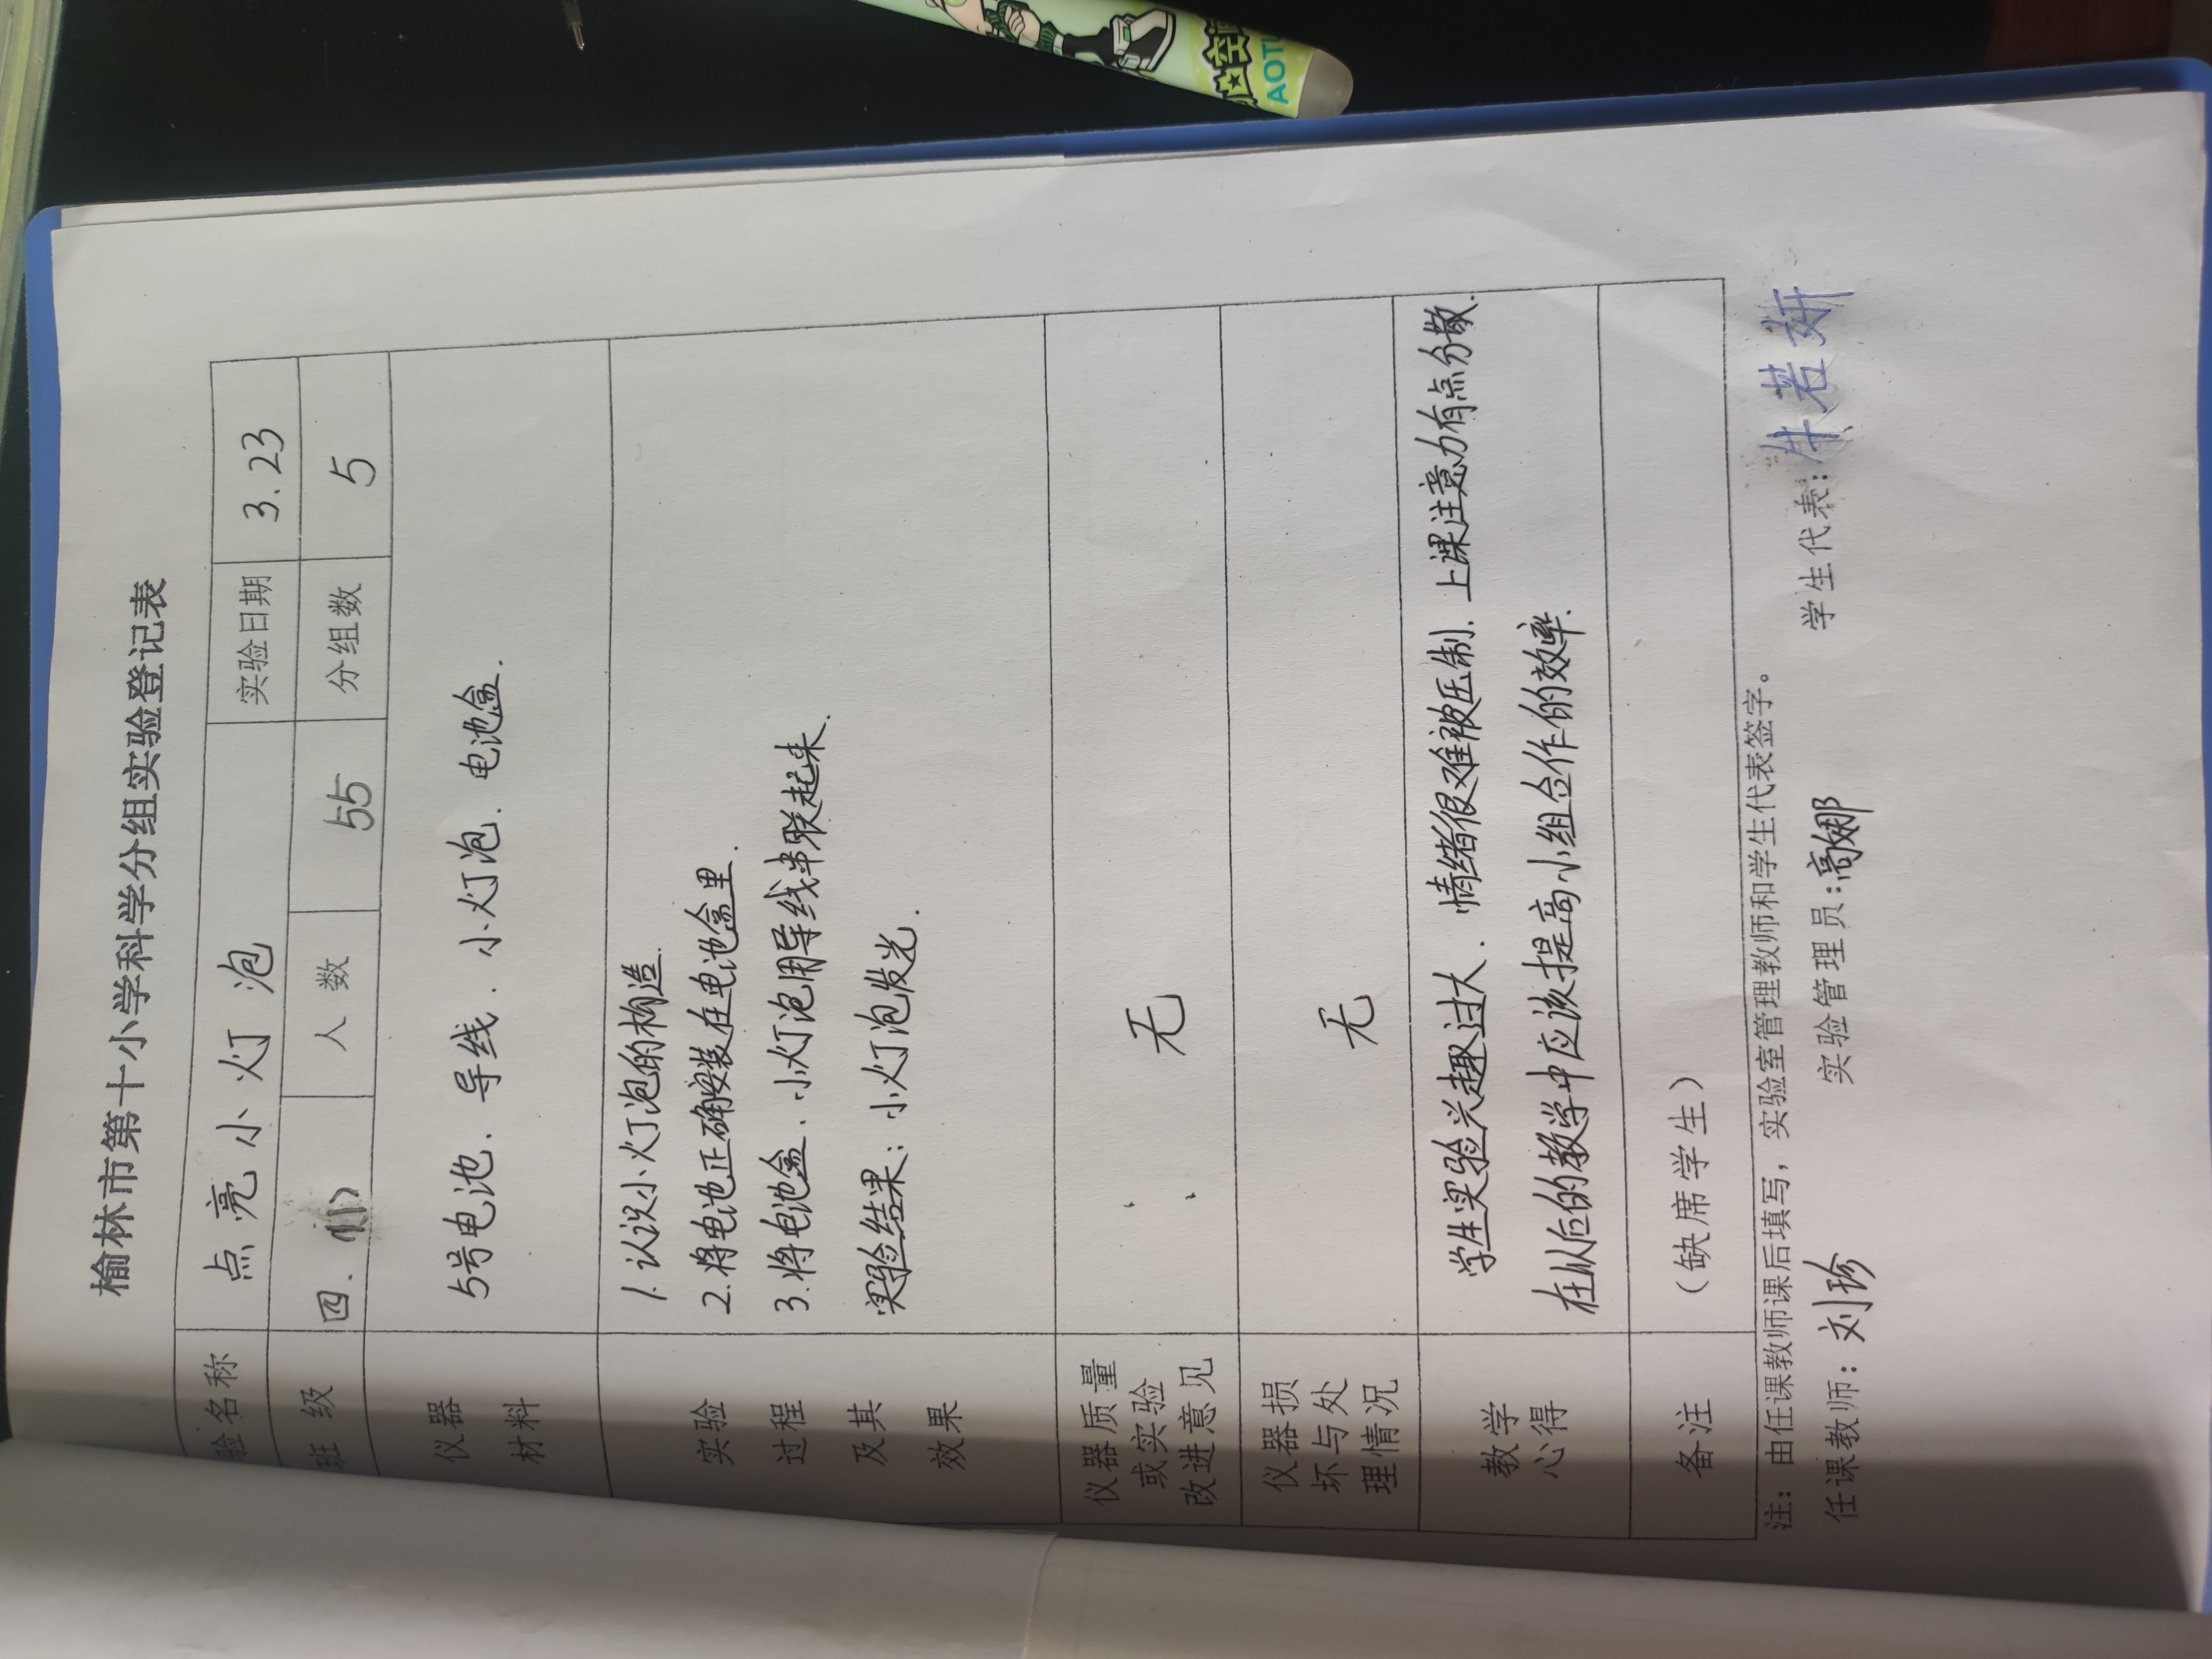 榆林市第十小学科学分组实验登记表
验名称 点亮小灯泡 实验日期 3.23
班级 四.(1) 人数 55 分组数 5
仪器
材料
5号电池、导线、小灯泡、电池盒.
实验
过程
及其
效果
1.认识小灯泡的构造.
2.将电池正确安装在电池盒里.
3.将电池盒、小灯泡用导线串联起来.
实验结果:小灯泡发光.
仪器质量
或实验
改进意见
无
仪器损
坏与处
理情况
无
教学
心得
学生实验兴趣过大、情绪很难被压制、上课注意力有点分散.
在以后的教学中应该提高小组合作的效率.
备注 (缺席学生)
注:由任课教师课后填写,实验室管理教师和学生代表签字。
任课教师:刘珍 实验管理员:高娜 学生代表:牛若妍
AOTU